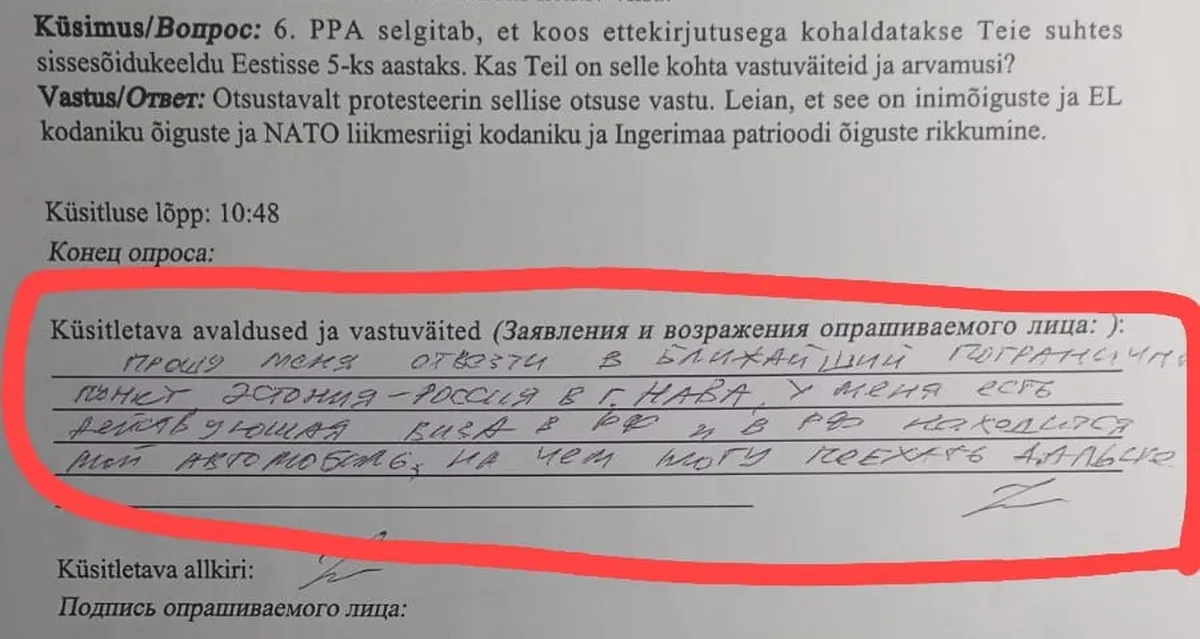 Küsimus/Вопрос: 6. PPA selgitab, et koos ettekirjutusega kohaldatakse Teie suhtes
sissesõidukeeldu Eestisse 5-ks aastaks. Kas Teil on selle kohta vastuväiteid ja arvamusi?
Vastus/Ответ: Otsustavalt protesteerin sellise otsuse vastu. Leian, et see on inimõiguste ja EL
kodaniku õiguste ja NATO liikmesriigi kodaniku ja Ingerimaa patrioodi õiguste rikkumine.
Küsitluse lõpp: 10:48
Конец опроса:
Küsitletava avaldused ja vastuväited (Заявления и возражения опрашиваемого лица: ):
прошу меня отвезти в ближайший
пункт Эстония-Россия в г. Нава, у меня есть
действующая виза в РФ и в РФ находится
мой автомобиль, на чем могу поехать дальше
Küsitletava allkiri:
Подпись опрашиваемого лица: